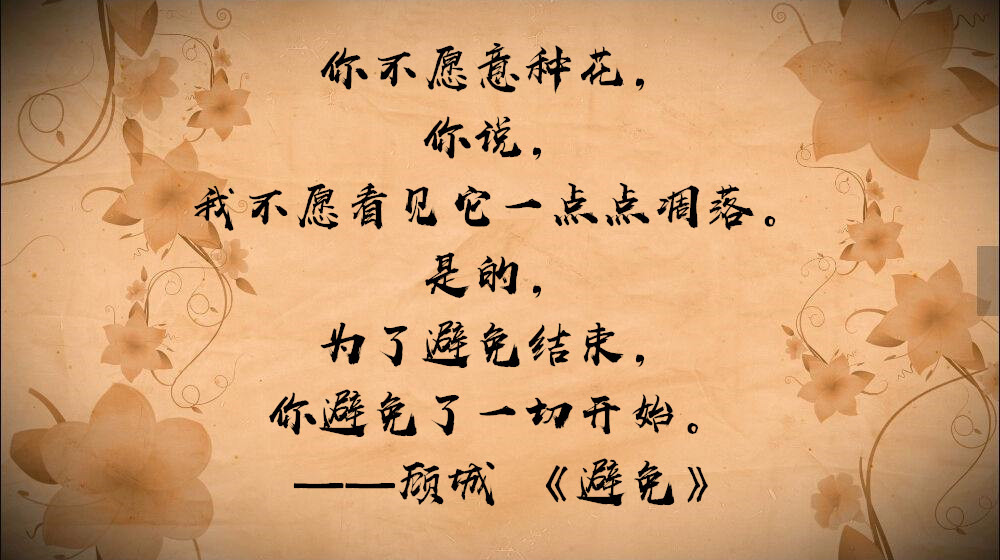 你不愿意种花，
你说，
我不愿看见它一点点凋落。
是的，
为了避免结束，
你避免了一切开始。
——顾城 《避免》